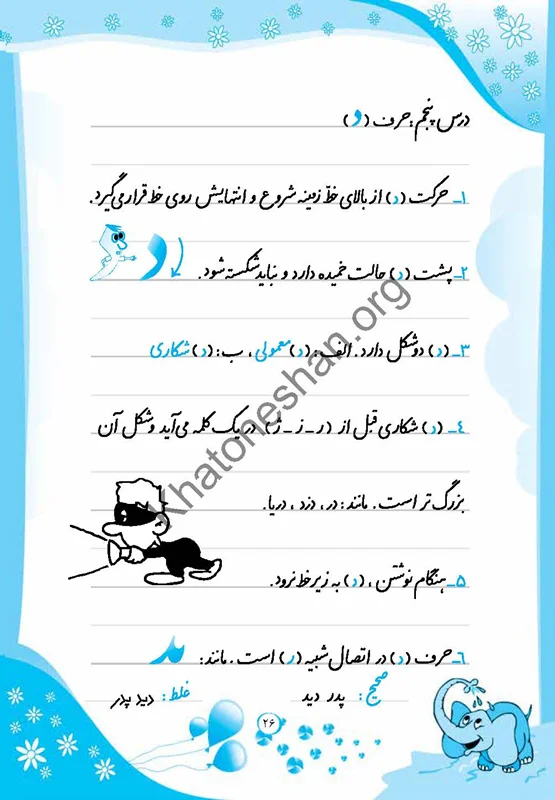 درس پنجم: حرف (د)
۱ـ حرکت (د) از بالای خطّ زمینه شروع و انتهایش روی خط قرار می‌گیرد.
۲ـ پشت (د) حالت خمیده دارد و نباید شکسته شود.
۳ـ (د) دو شکل دارد. الف: (د) معمولی، ب: (د) شکاری
۴ـ (د) شکاری قبل از (ر ـ ز ـ ژ) در یک کلمه می‌آید و شکل آن
بزرگ تر است. مانند: در، دزد، دریا.
۵ـ هنگام نوشتن، (د) به زیر خط نرود.
۶ـ حرف (د) در اتصال شبیه (ر) است. مانند: ـد
صحیح: پدر دید غلط: دید پدر
۲۶
Khatoneshan.org